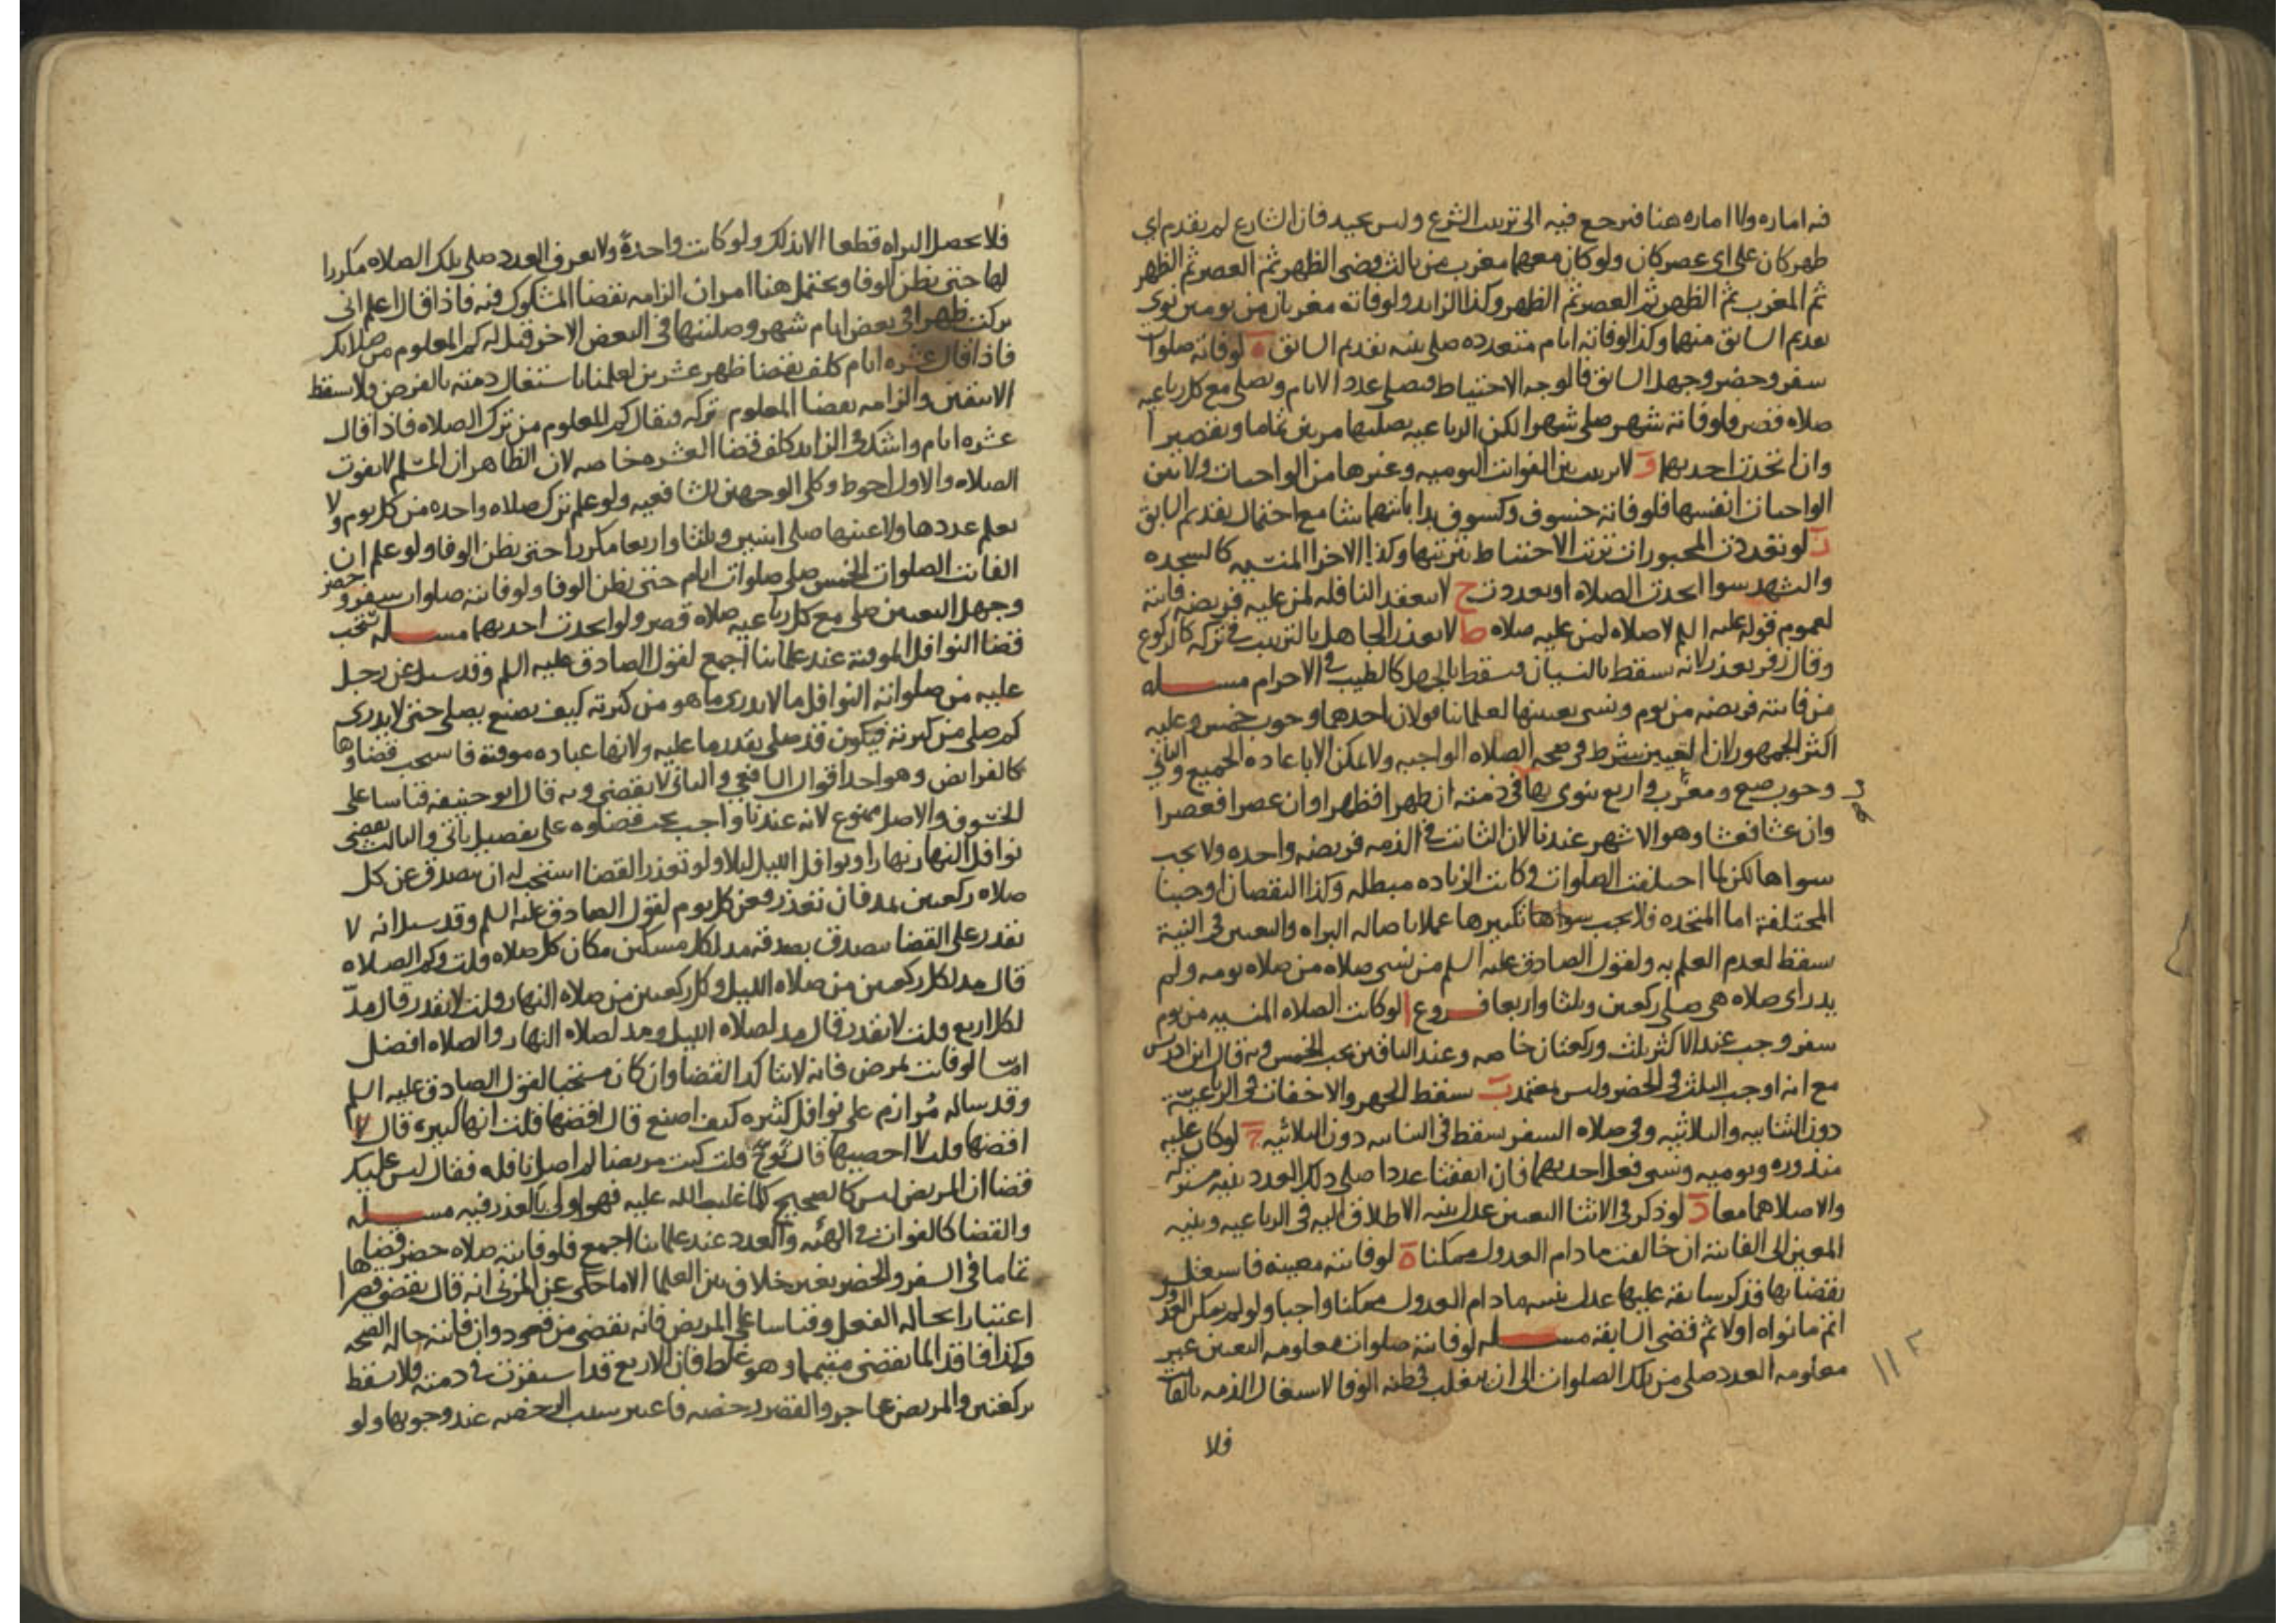 فيه اماره ولا اماره هنا فيرجع فيه الى ترتيب الشرع وليس بجيد فان الشارع لم يقدم اي
ظهر كان على اي عصر كان ولو كان معهما مغرب من ثالث قضى الظهر ثم العصر ثم الظهر
ثم المغرب ثم الظهر ثم العصر ثم الظهر وكذا الزايد ولو فاته مغربان من يومين نوى
تقديم السابق منهما وكذا لو فاته ايام متعدده صلى بنيه تقديم السابق ه لو فاته صلوات
سفر وحضر وجهل السابق فالوجه الاحتياط فيصلى عدد الايام ويصلى مع كل رباعيه
صلاه قصر فلو فاتته شهر صلى شهرا لكن الرباعيه يصليها مرتين تماما وتقصيرا
وان اتحدت احديهما و لا ترتيب بين الفوائت اليوميه وغيرها من الواجبات ولا بين
الواجبات انفسها فلو فاته خسوف وكسوف بدا بايتهما شا مع احتمال تقديم السابق
ز لو تعددت المجبورات ترتب الاحتياط بترتبها وكذا الاجزا المنسيه كالسجده
والتشهد سوا اتحدت الصلاه او تعددت ح لا تنعقد النافله لمن عليه فريضه فايته
لعموم قوله عليه السلم لا صلاه لمن عليه صلاه ط لا يعذر الجاهل بالترتيب في تركه كالركوع
وقال زفر يعذر لانه يسقط بالنسيان فيسقط بالجهل كالطيب في الاحرام مسله
من فاتته فريضه من يوم ونسى تعيينها لعلماينا قولان احدهما وجوب خمس وعليه
اكثر الجمهور لان التعيين شرط في صحه الصلاه الواجبه ولا يمكن الا باعاده الجميع والثاني
وجوب صبح ومغرب واربع ينوى بها في ذمته ان ظهرا فظهرا وان عصرا فعصرا
وان عشا فعشا وهو الاشهر عندنا لان الثابت في الذمه فريضه واحده ولا يجب
سواها لكن لما اختلفت الصلوات وكانت الزياده مبطله وكذا النقصان اوجبنا
المختلفة اما المتحده فلا يجب تكثيرها عملا باصاله البراه والتعيين في النية
سقط لعدم العلم به ولقول الصادق عليه السلم من نسى صلاه من صلاه يومه ولم
يدر اى صلاه هي صلى ركعتين وثلثا واربعا فروع ا لو كانت الصلاه المنسيه من يوم
سفر وجب عند الاكثر ثلث وركعتان خاصه وعند الباقين يجب الخمس وبه قال ابن ادريس
مع انه اوجب الثلث في الحضر وليس بمعتمد ب سقط الجهر والاخفات في الرباعيه
دون الثنايه والثلاثيه وفي صلاه السفر يسقط في الثنايه دون الثلاثيه ج لو كان عليه
منذوره ويوميه ونسى فعل احديهما فان اتفقتا عددا صلى ذلك العدد بنيه مشتركه
والا صلاهما معا د لو ذكر في الاثنا التعيين عدل بنيه الاطلاق اليه في الرباعيه وبنيه
المعين الى الفايته ان خالفت مادام العدول ممكنا ه لو فاتته معينة فاشتغل
بقضايها فذكر سابقة عليها عدل بنيته مادام العدول ممكنا واجبا ولو لم يمكن العدول
اتم ما نواه اولا ثم قضى السابقة مسله لو فاتته صلوات معلومه التعيين غير
معلومه العدد صلى من تلك الصلوات الى ان يغلب في ظنه الوفا لاشتغال الذمه بالفايت
فلا
١١٢
فلا يحصل البراه قطعا الا بذلك ولو كانت واحدةً ولا يعرف العدد صلى تلك الصلاه مكررا
لها حتى يظن الوفا ويحتمل هنا امران الزامه بقضا المشكوك فيه فاذا قال اعلم انى
تركت ظهرا في بعض ايام شهر وصليتها في البعض الاخر قيل له كم المعلوم من صلاتك
فاذا قال عشره ايام كلف بقضا ظهر عشرين لعلمنا باشتغال ذمته بالفرض ولا يسقط
الا بيقين والزامه بقضا المعلوم تركه فيقال كم المعلوم من ترك الصلاه فاذا قال
عشره ايام واشك في الزايد كلف قضا العشره خاصه لان الظاهر ان المسلم لا يفوت
الصلاه والاول احوط وكلى الوجهين للشافعيه ولو علم ترك صلاه واحده من كل يوم ولا
يعلم عددها ولا عينها صلى اثنتين وثلثا واربعا مكررا حتى يظن الوفا ولو علم ان
الفايت الصلوات الخمس صلى صلوات ايام حتى يظن الوفا ولو فاتته صلوات سفر وحضر
وجهل التعيين صلى مع كل رباعيه صلاه قصر ولو اتحدت احديهما مسله يستحب
قضا النوافل الموقتة عند علماينا اجمع لقول الصادق عليه السلم وقد سيل عن رجل
عليه من صلواته النوافل ما لا يدرى ما هو من كثرته كيف يصنع يصلى حتى لا يدرى
كم صلى من كثرته فيكون قد صلى بقدر ما عليه ولانها عباده موقتة فاستحب قضاوها
كالفرايض وهو احد اقوال الشافعي والثاني لا يقضى وبه قال ابو حنيفه قياسا على
الخسوف والاصل ممنوع لانه عندنا واجب يجب قضاوه على تفصيل ياتى والثالث يقضى
نوافل النهار نهارا ونوافل الليل ليلا ولو تعذر القضا استحب له ان يتصدق عن كل
صلاه ركعتين بمد فان تعذر فعن كل يوم لقول الصادق عليه السلم وقد سيل انه لا
يقدر على القضا يتصدق بصدقه مد لكل مسكين مكان كل صلاه قلت وكم الصلاه
قال مد لكل ركعتين من صلاه الليل وكل ركعتين من صلاه النهار قلت لا يقدر قال مدّ
لكل اربع قلت لا يقدر قال مد لصلاه الليل ومد لصلاه النهار والصلاه افضل
امّا لو فاتت لمرض فانه لا يتاكد القضا وان كان مستحبا لقول الصادق عليه السلم
وقد ساله مُرازم على نوافل كثيره كيف اصنع قال اقضها قلت انها كثيره قال
اقضها قلت لا احصيها قال توخّ قلت كنت مريضا لم اصل نافله فقال ليس عليك
قضا ان المريض ليس كالصحيح كلما غلب الله عليه فهو اولى بالعذر فيه مسله
والقضا كالفوات في الهيئه والعدد عند علماينا اجمع فلو فاتته صلاه حضر قضاها
تماما في السفر والحضر بغير خلاف بين العلما الا ما حكى عن المزنى انه قال يقضى قصرا
اعتبارا بحاله الفعل وقياسا على المريض فانه يقضى من قعود وان فاتته حاله الصحه
وكذا فاقد الما يقضى متيمما وهو غلط فان الاربع قد استقرت في ذمته فلا يسقط
بركعتين والمريض عاجز والقصر رخصه فاعتبر سبب الرخصه عند وجوبها ولو